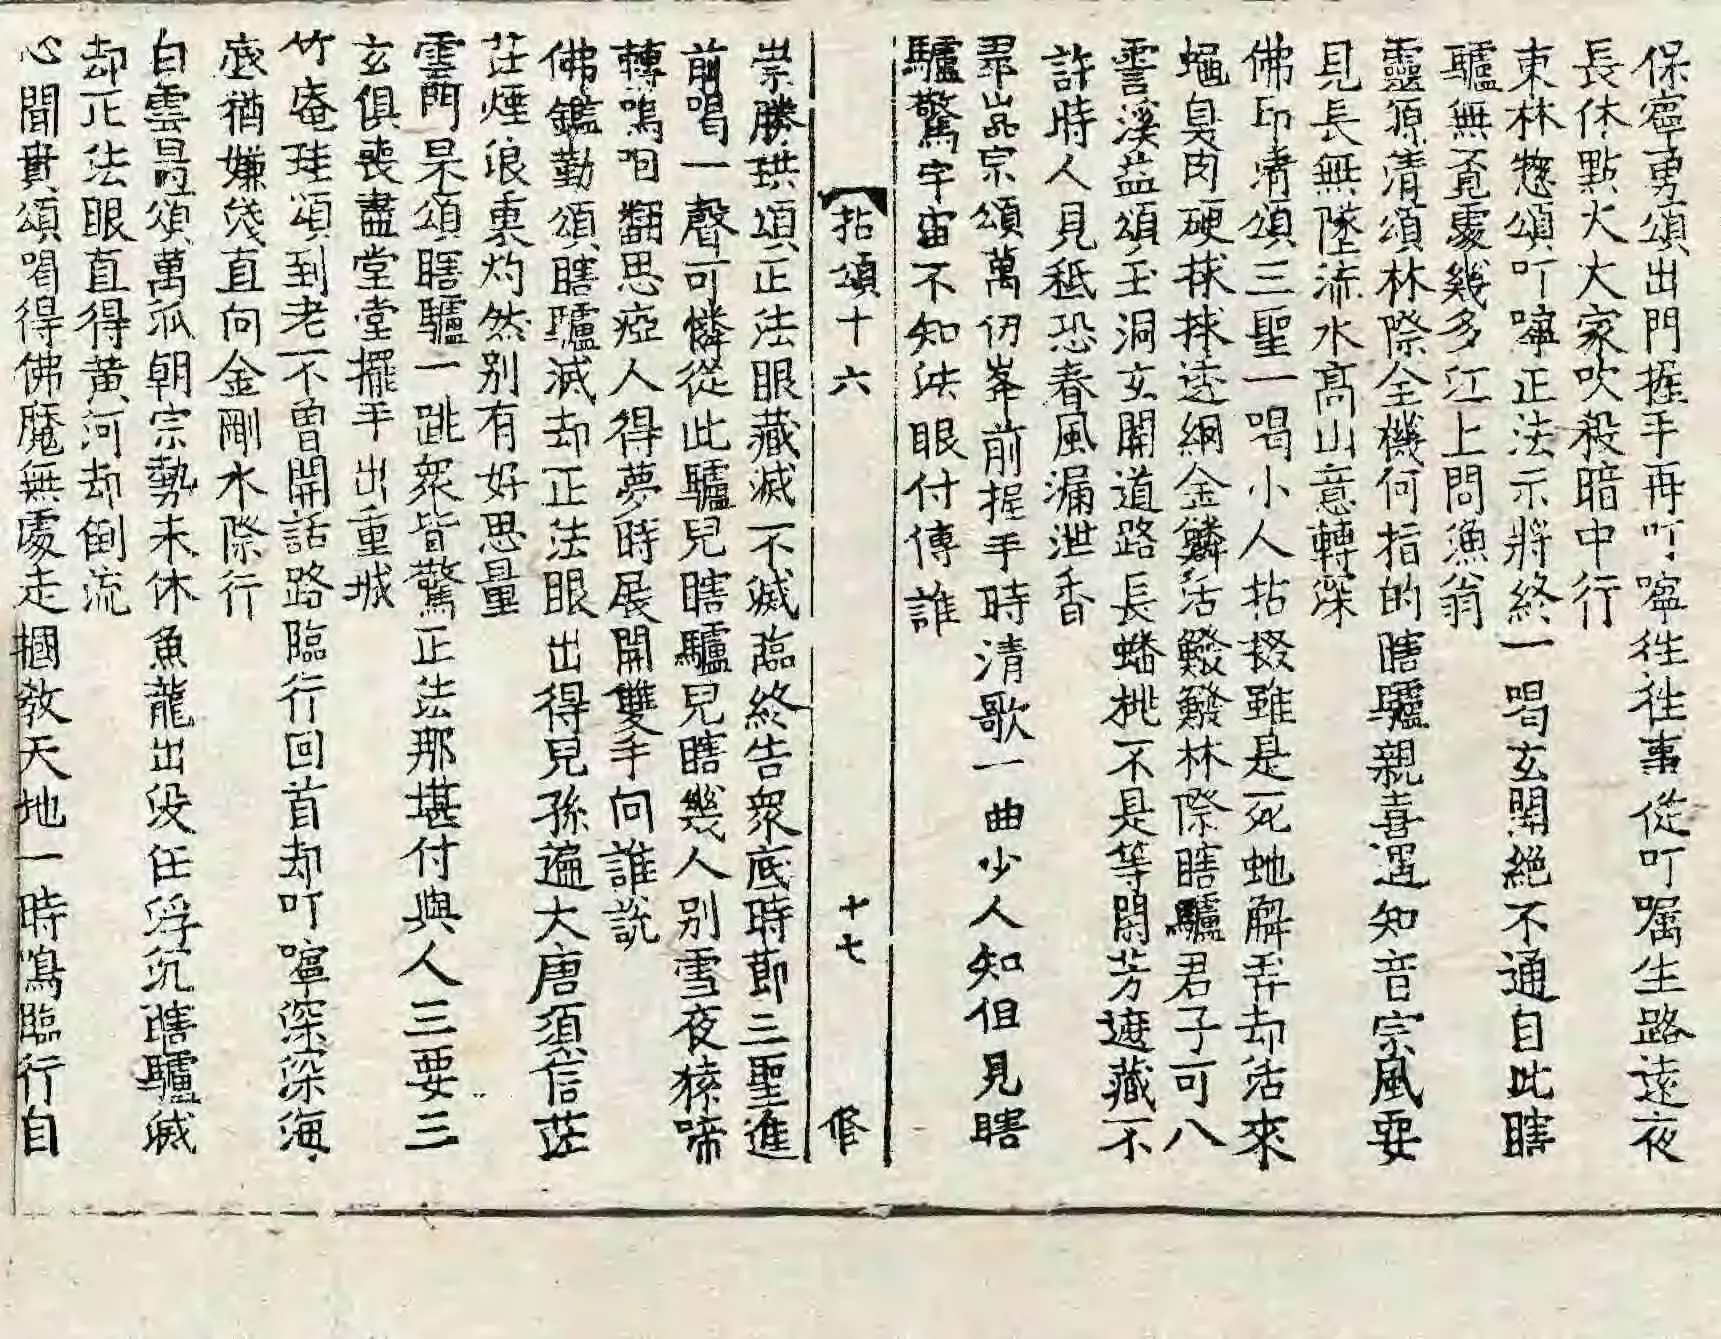 保寧勇頌出門握手再叮嚀徃徃事從叮囑生路遠夜
長休點火大家吹殺暗中行
東林惣頌叮嚀正法示將終一喝玄開絶不通自此瞎
驢無覔處幾多江上問漁翁
靈源清頌林際全機何指的瞎驢親喜遇知音宗風要
見長無墜流水高山意轉深
佛印清頌三聖一喝小人拈掇雖是死虵解弄却活來
蠅臭肉硬捄捄透網金鱗活鱍鱍林際瞎驢君子可八
霅溪益頌玉洞玄開道路長蟠桃不是等閑芳遮藏不
許時人見秪恐春風漏泄香
嵓宗頌萬仞峯前握手時清歌一曲少人知但見瞎
驢驚宇宙不知法眼付傳誰
拈頌十六 十七 修
崇勝珙頌正法眼藏滅不滅臨終告衆底時節三聖進
前喝一聲可憐從此驢兒瞎驢兒瞎幾人別雪夜猿啼
轉嗚咽翻思瘂人得夢時展開雙手向誰説
佛鑑勤頌瞎驢滅却正法眼出得兒孫遍大唐須信茫
茫煙浪裏灼然別有好思量
雲門杲頌瞎驢一跳衆皆驚正法那堪付與人三要三
玄俱喪盡堂堂擺手出重城
竹庵珪頌到老不曽開話路臨行回首却叮嚀深深海
底猶嫌淺直向金剛水際行
白雲昺頌萬派朝宗勢未休魚龍出没任浮沉瞎驢滅
却正法眼直得黄河却倒流
心聞賁頌喝得佛魔無處走摑教天地一時鳴臨行自